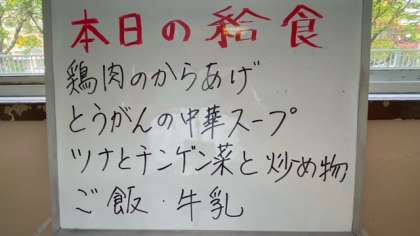 本日の給食
鶏肉のからあげ
とうがんの中華スープ
ツナとチンゲン菜と炒め物
ご飯・牛乳